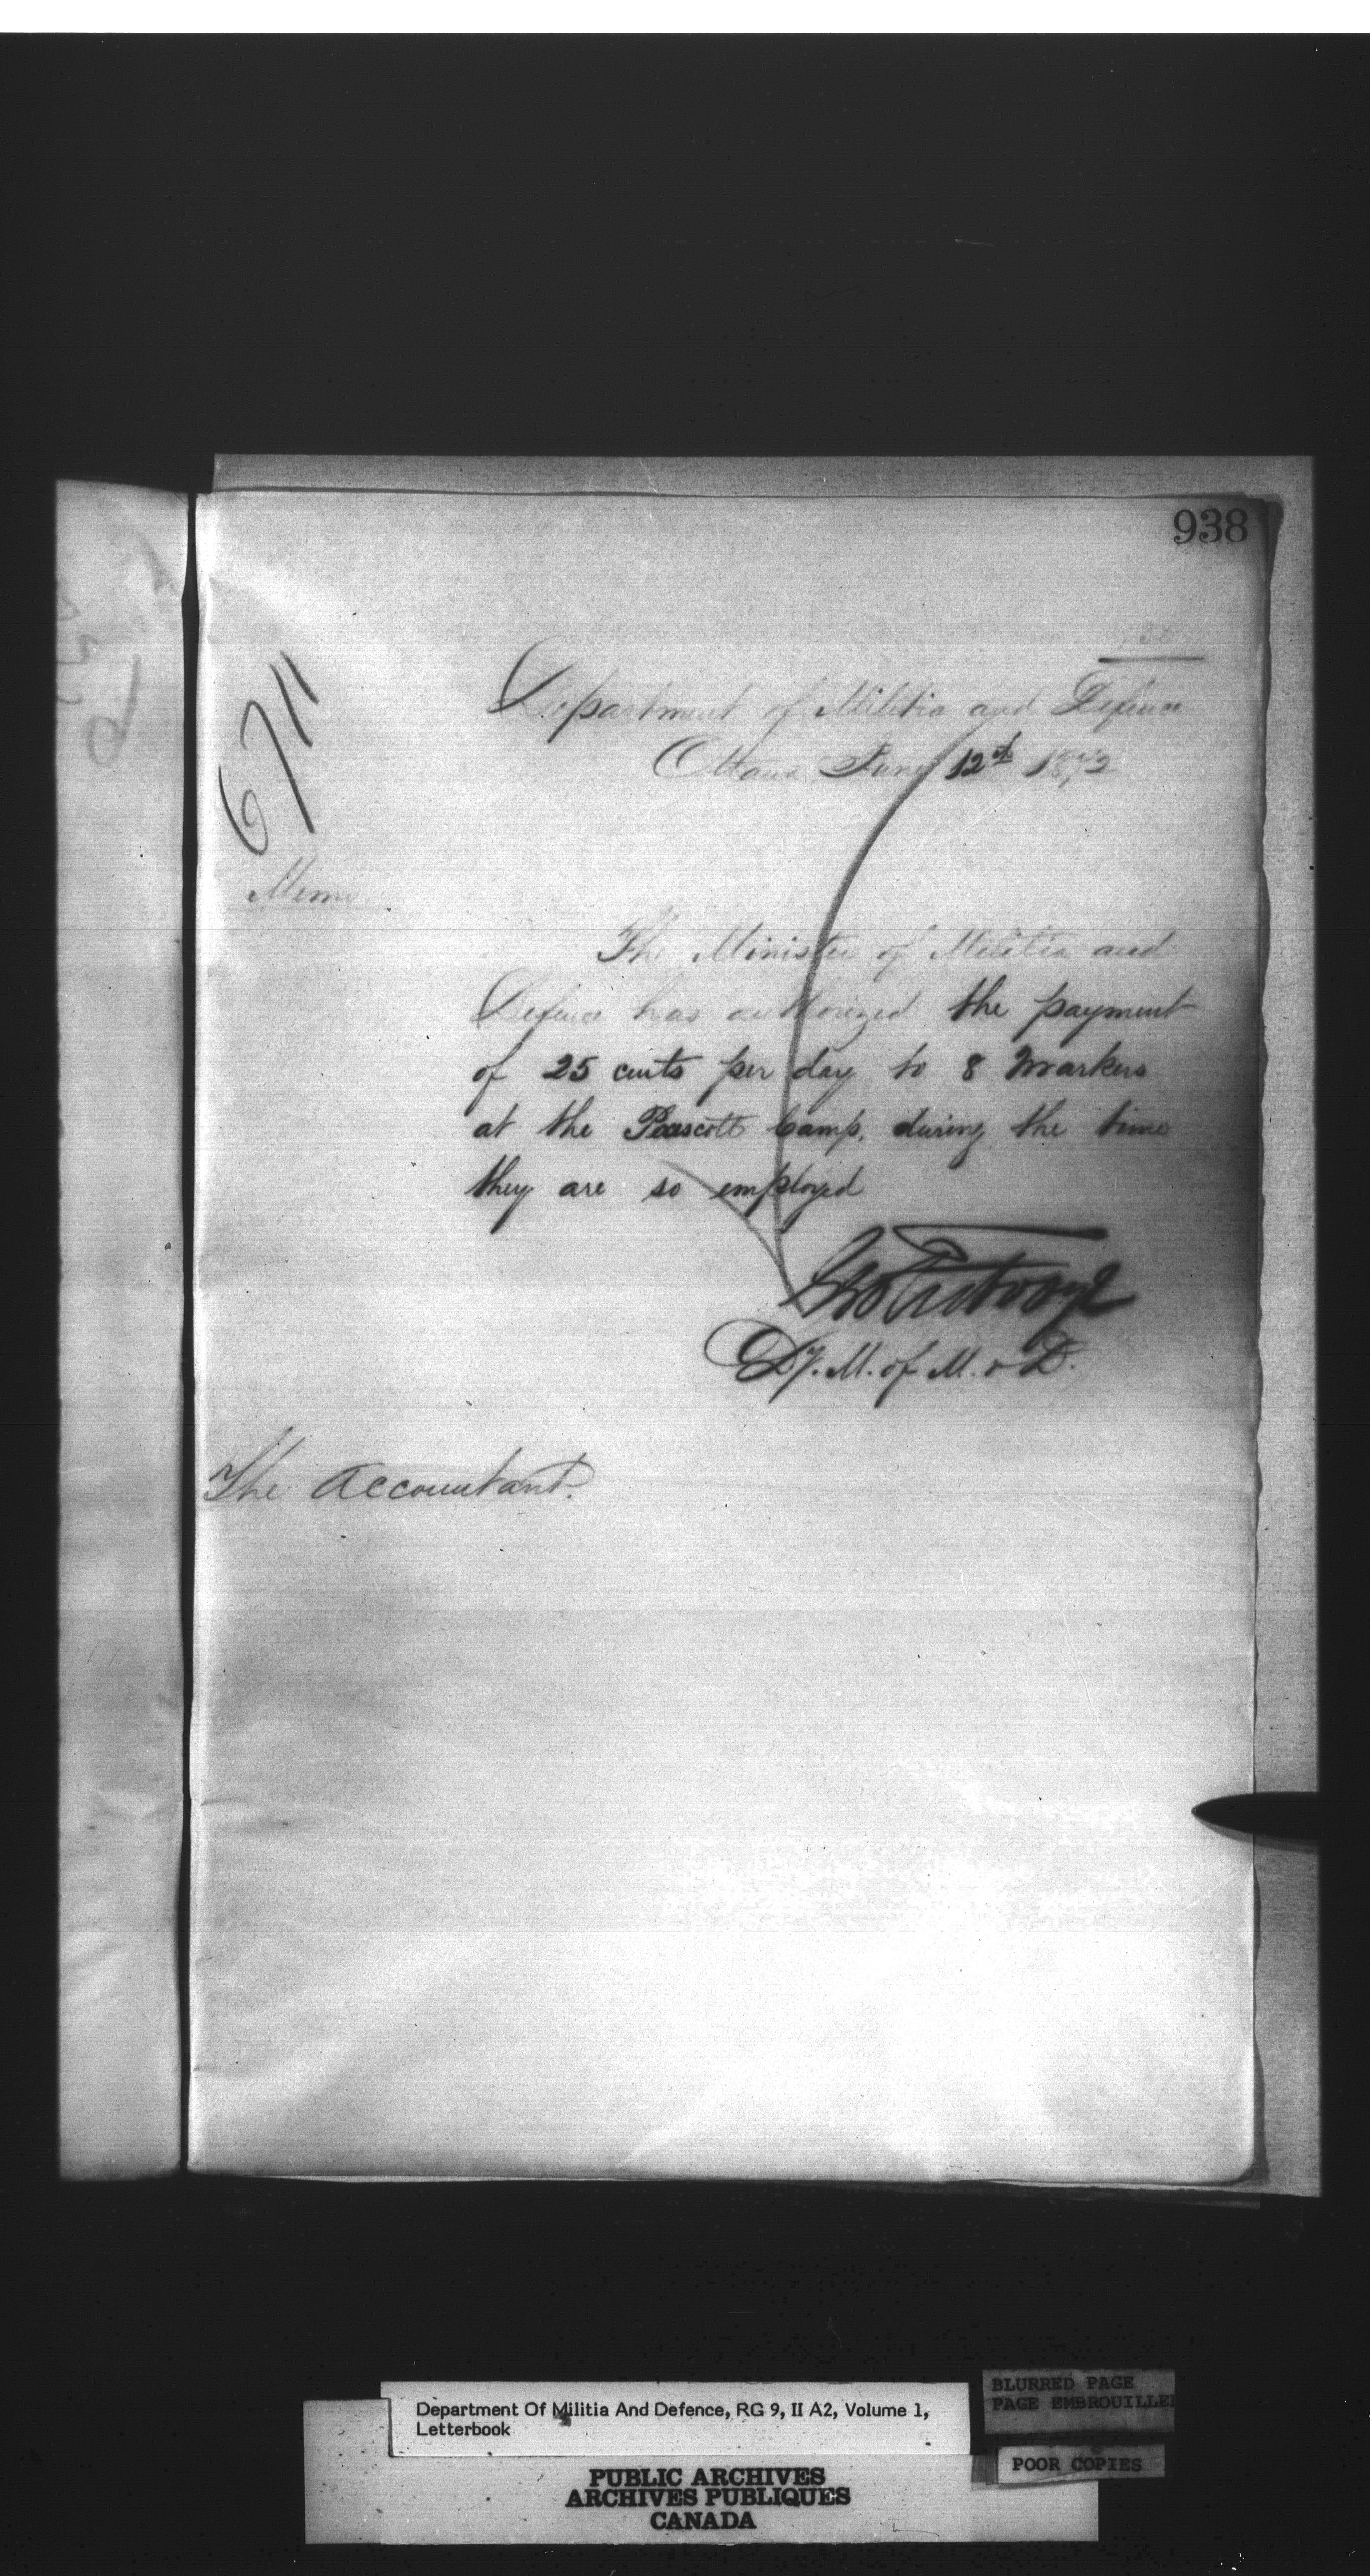 938
6711
Department of Militia and Defence
Ottawa June 12th 1872
Memo.
The Minister of Militia and
Defence has authorized the payment
of 25 cents per day to 8 Markers
at the Prescott Camp, during the time
they are so employed
Geo Futvoye
Dy. M. of M. & D.
The Accountant.
Department Of Militia And Defence, RG 9, II A2, Volume 1,
Letterbook
BLURRED PAGE
PAGE EMBROUILLEE
POOR COPIES
PUBLIC ARCHIVES
ARCHIVES PUBLIQUES
CANADA